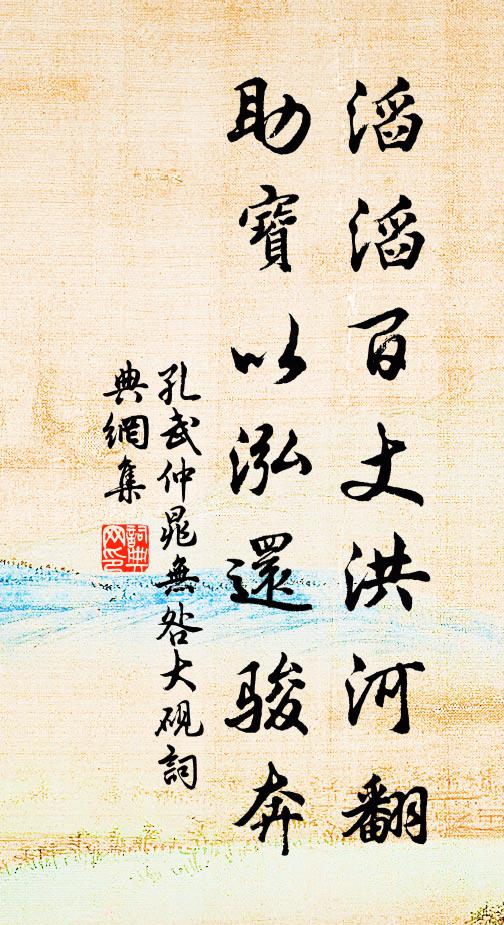 滔滔百丈洪河翻
助寶以泓還骏奔
孔武仲晁無咎大砚詞
典網集
詞典
网印